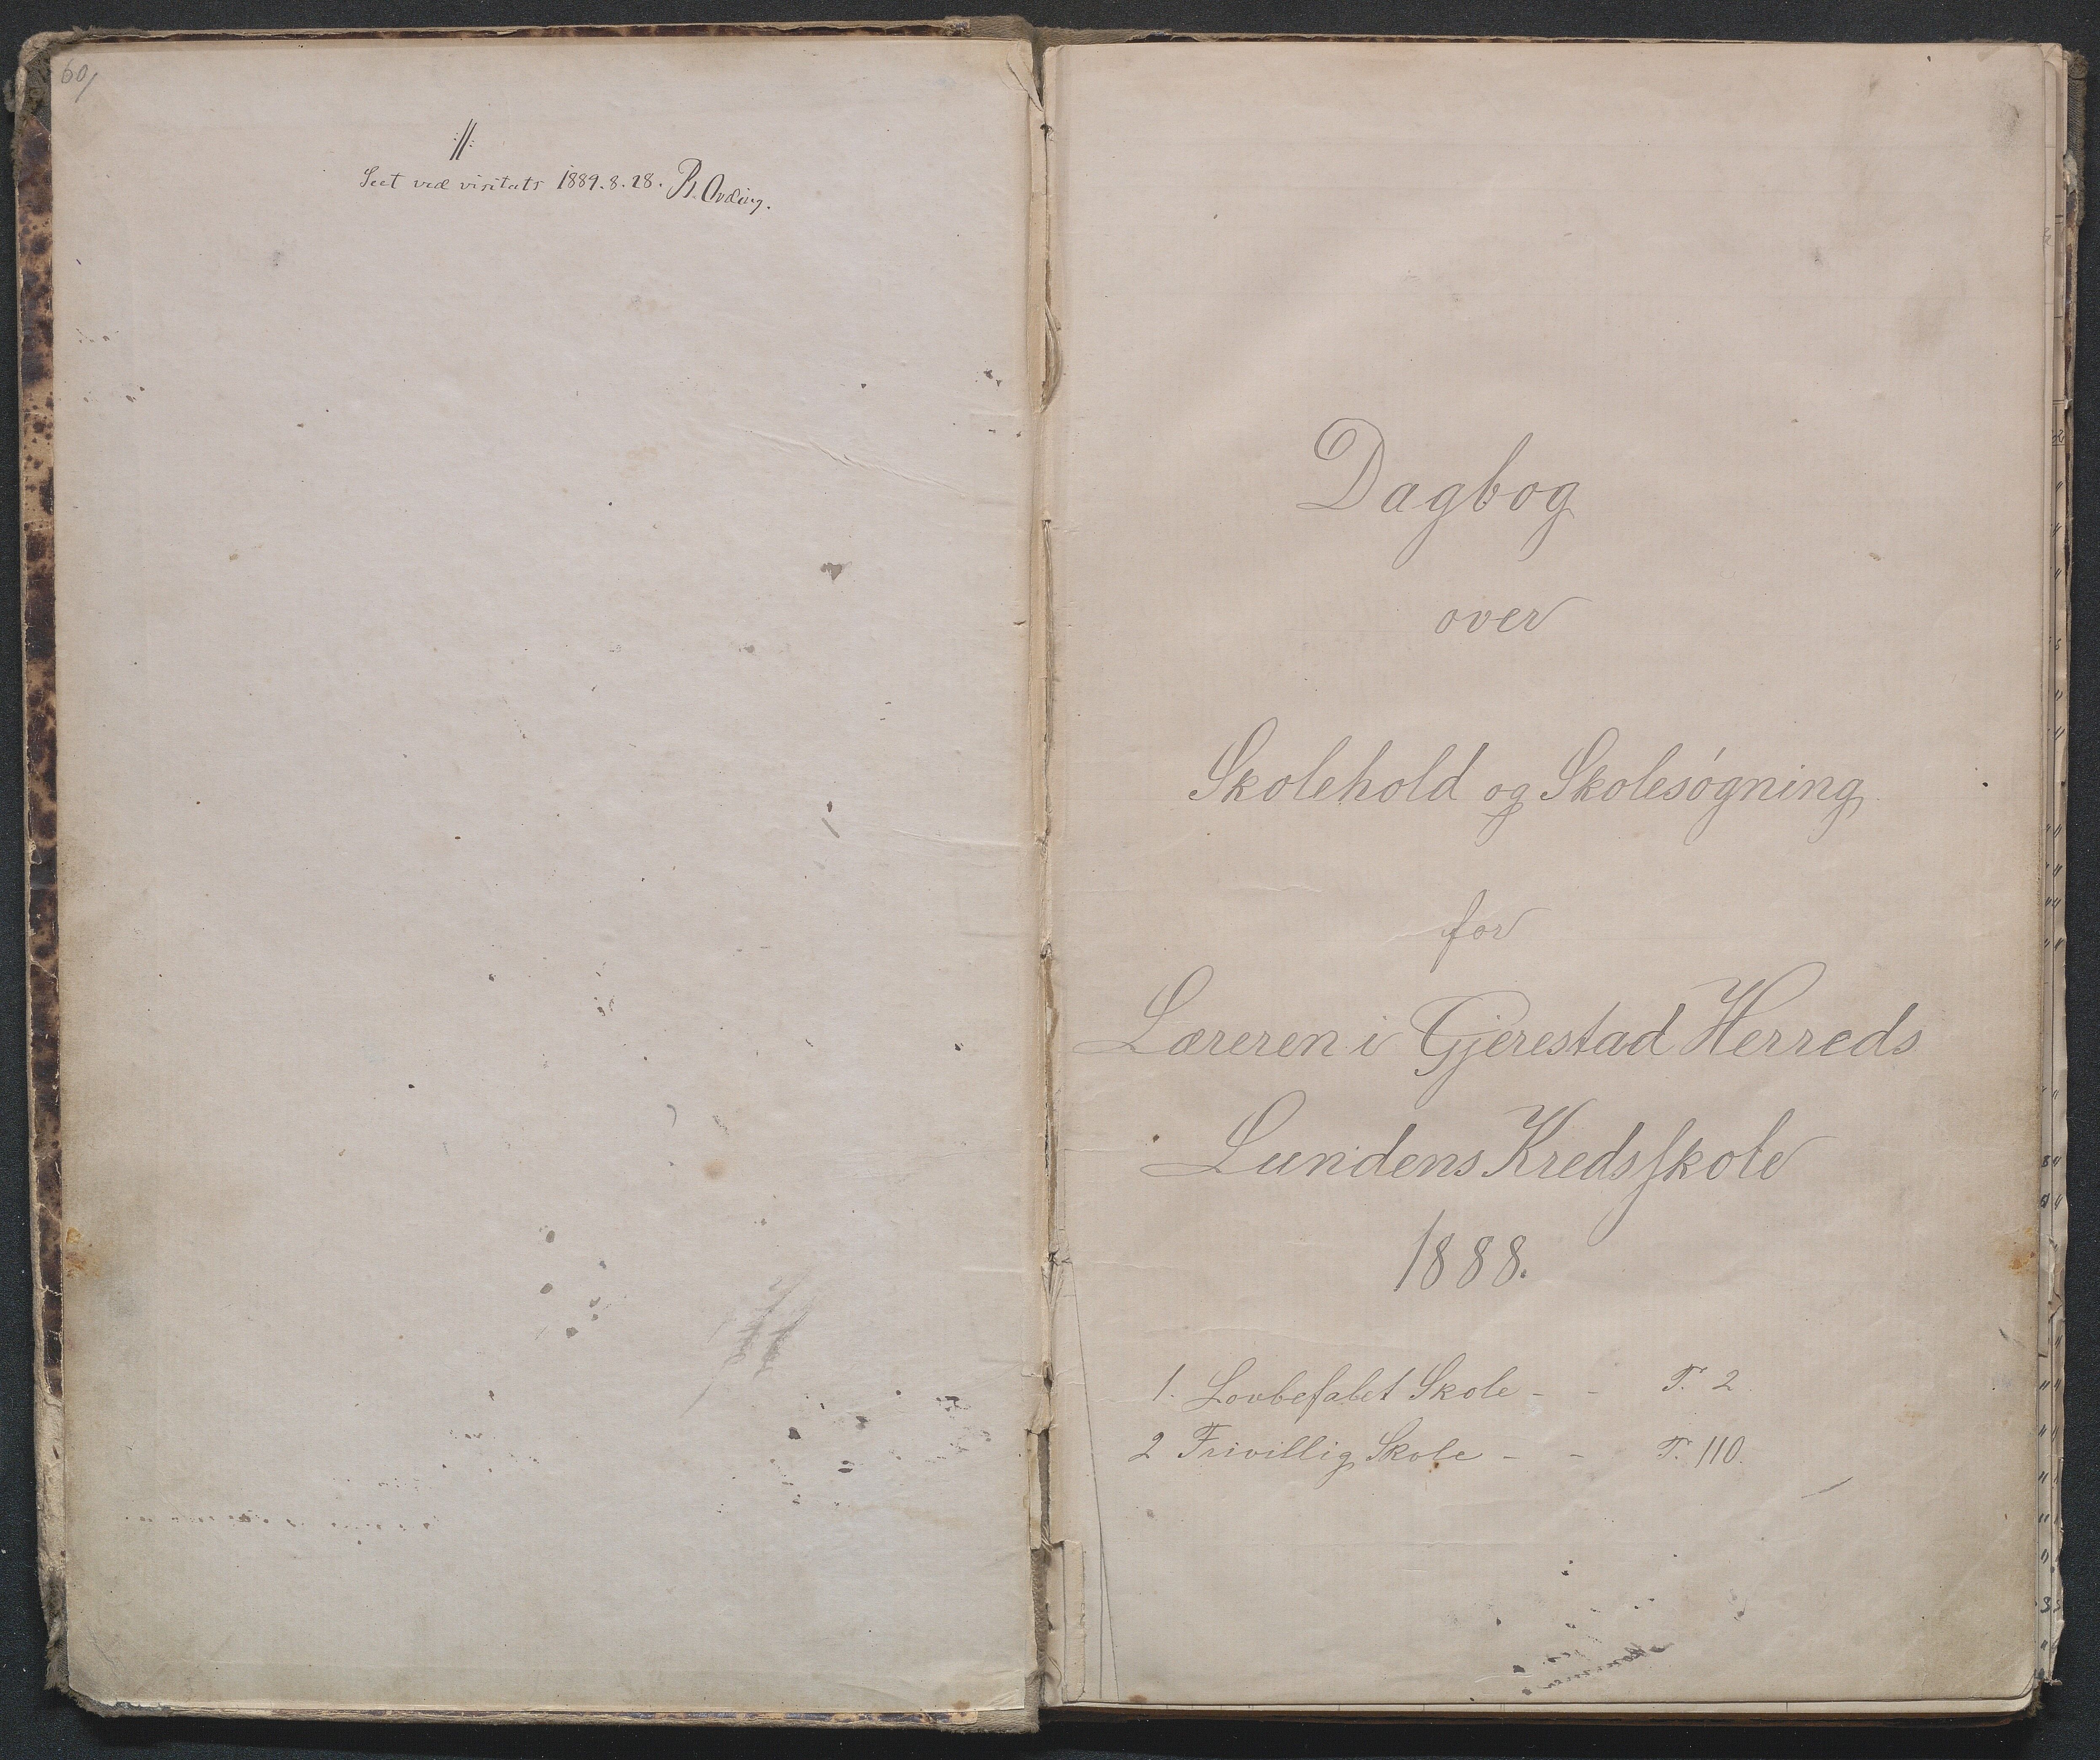 60/
://:
Seet ved visitats 1889.8.28. B. Ording.
Dagbog
over
Skolehold og Skolesøgning
for
Læreren i Gjerestad Herreds
Lundens Kredsskole
1888.
1. Lovbefalet Skole - - P. 2
2 Frivillig Skole - - P. 110.